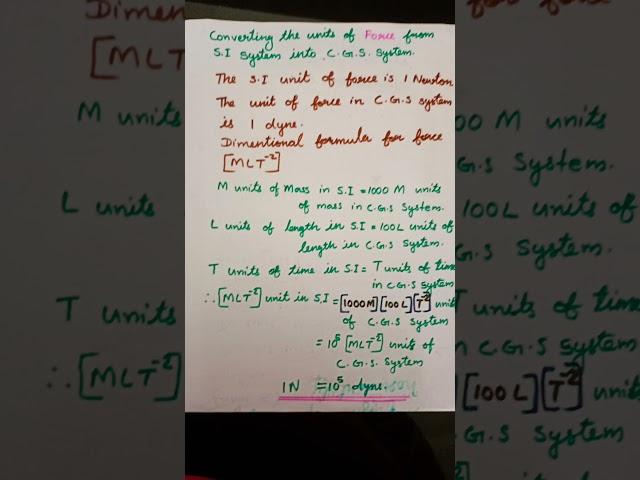 Converting the units of Force from
S.I System into C.G.S. System.
The S.I unit of force is 1 Newton
The unit of force in C.G.S system
is 1 dyne.
Dimentional formular for force
[MLT⁻²]
M units of Mass in S.I = 1000 M units
of mass in C.G.S System.
L units of length in S.I = 100L units of
length in C.G.S System.
T units of time in S.I = T units of time
in C.G.S System
∴ [MLT⁻²] unit in S.I = [1000M][100L][T⁻²] units
of C.G.S System
= 10⁵ [MLT⁻²] units of
C.G.S. System
1N = 10⁵ dyne.